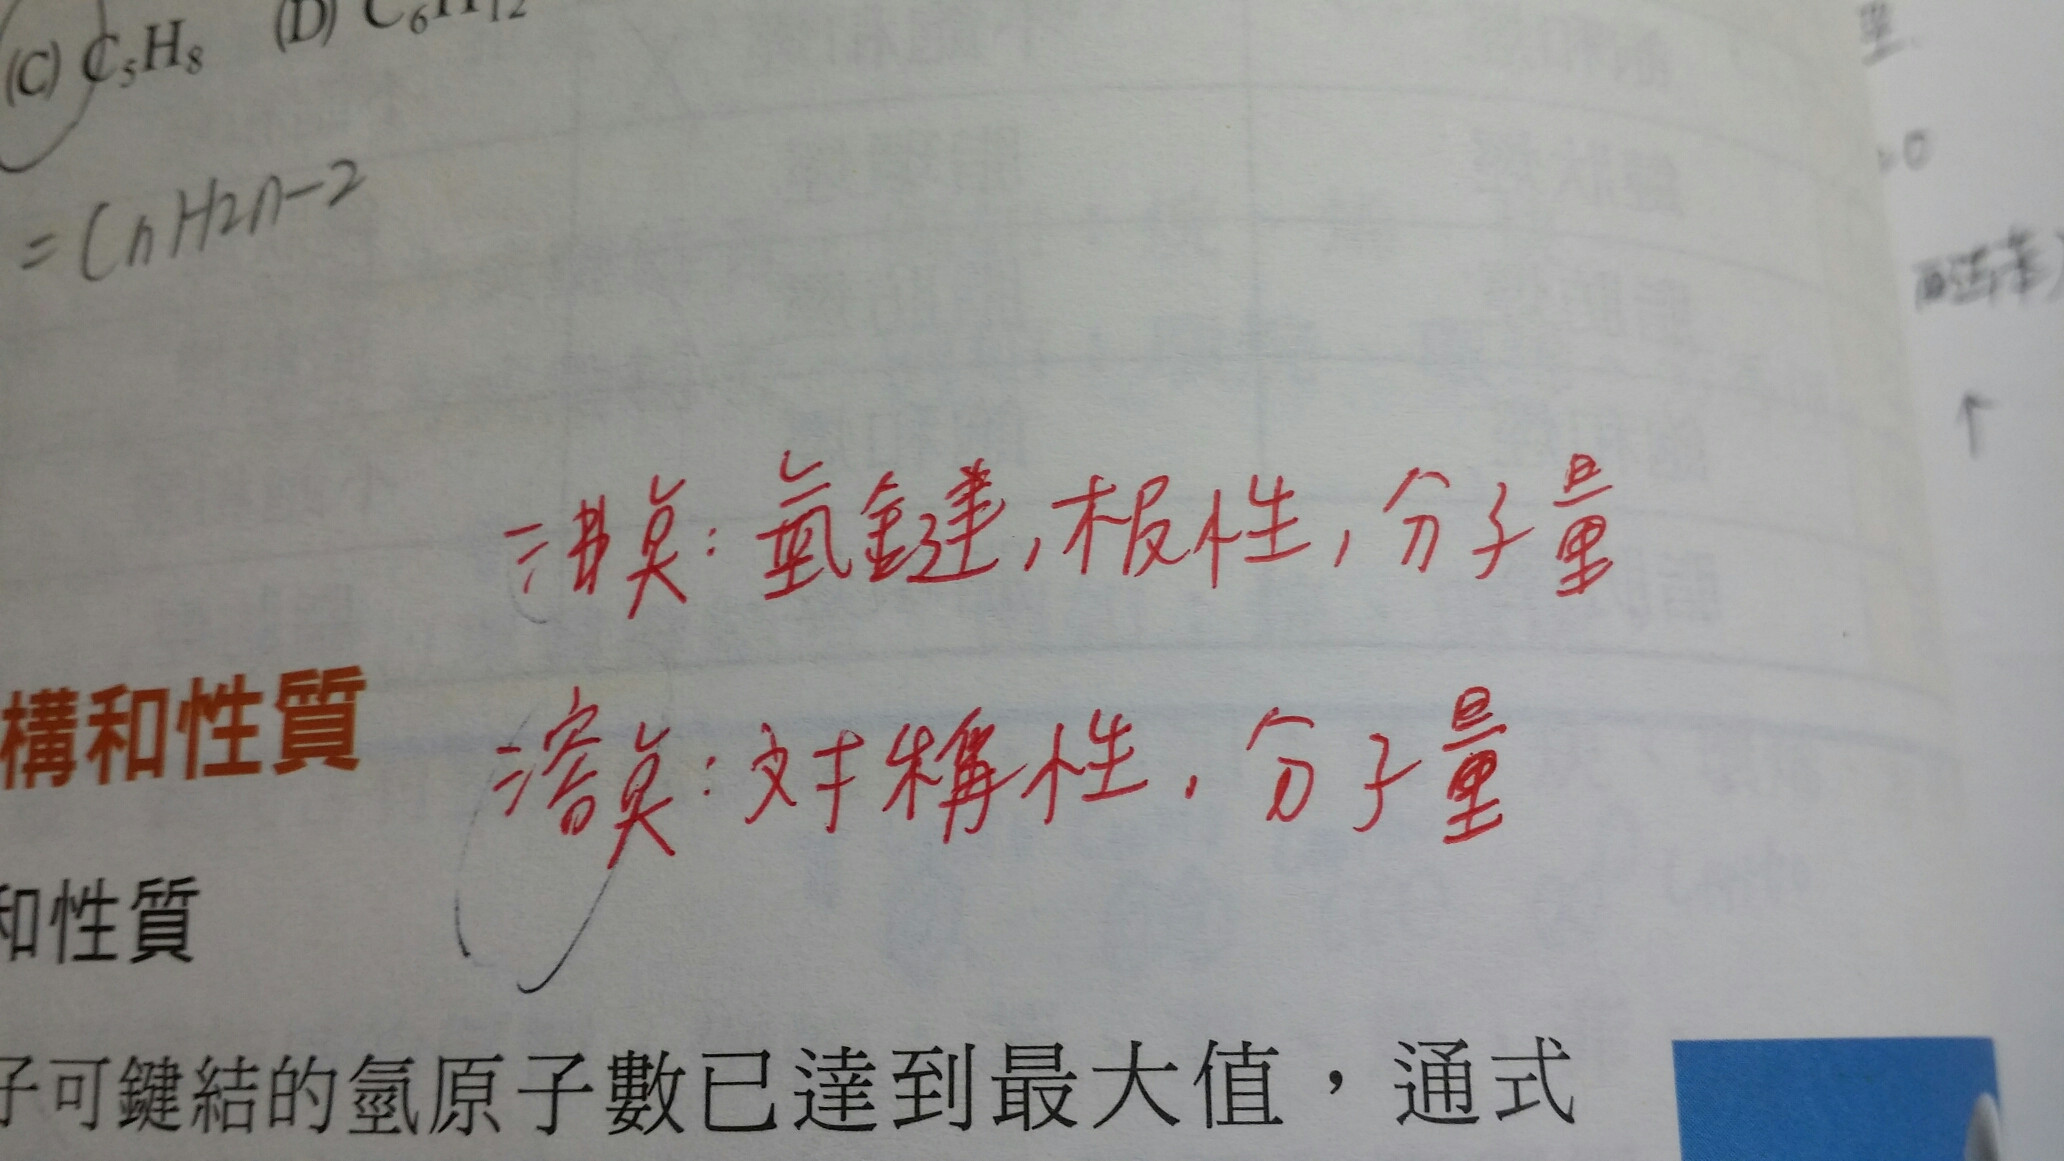 (C) C5H8 (D) C6H12
= CnH2n-2
沸點:氫鍵,極性,分子量
構和性質
溶點:対稱性,分子量
和性質
子可鍵結的氫原子數已達到最大值，通式